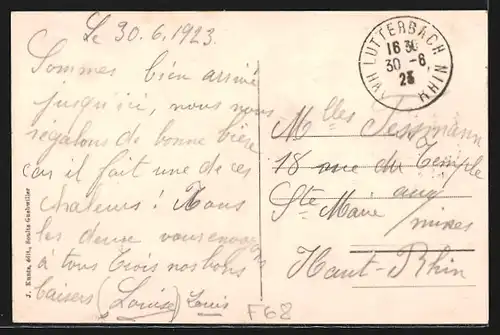 Le 30.6.1923.
Sommes bien arrivé
jusqu'ici, nous nous
régalons de bonne bière
car il fait une de ces
chaleurs! Nous
les deux vous envoyons
à tous trois nos bons
baisers (Louise) Louis
J. Kuntz, édit., Soultz Guebwiller
LUTTERBACH
HAUT RHIN
16 30
30 - 6
23
Mlles Tessmann
18 rue du Temple
Ste Marie aux
mines
Haut-Rhin
F68